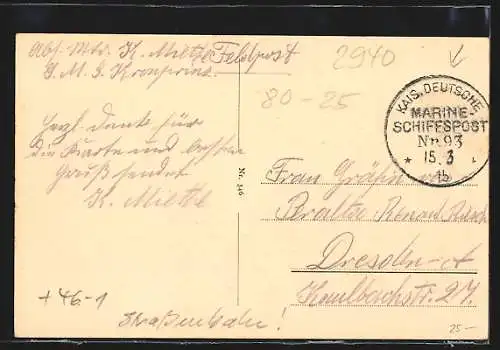 Abs. Mtr. K. Mietke Feldpost
S. M. S. Kronprinz.
2940
80-25
KAIS. DEUTSCHE
MARINE-
SCHIFFSPOST
Nr. 93
* 15. 3
15
Hzgl. Dank für
die Karte und besten
Gruß sendet
K. Mietke
Nr. 346
Frau Gräfin von
Dresden-A
Kaulbachstr. 27.
+46-1
Straßenbahn!
25-